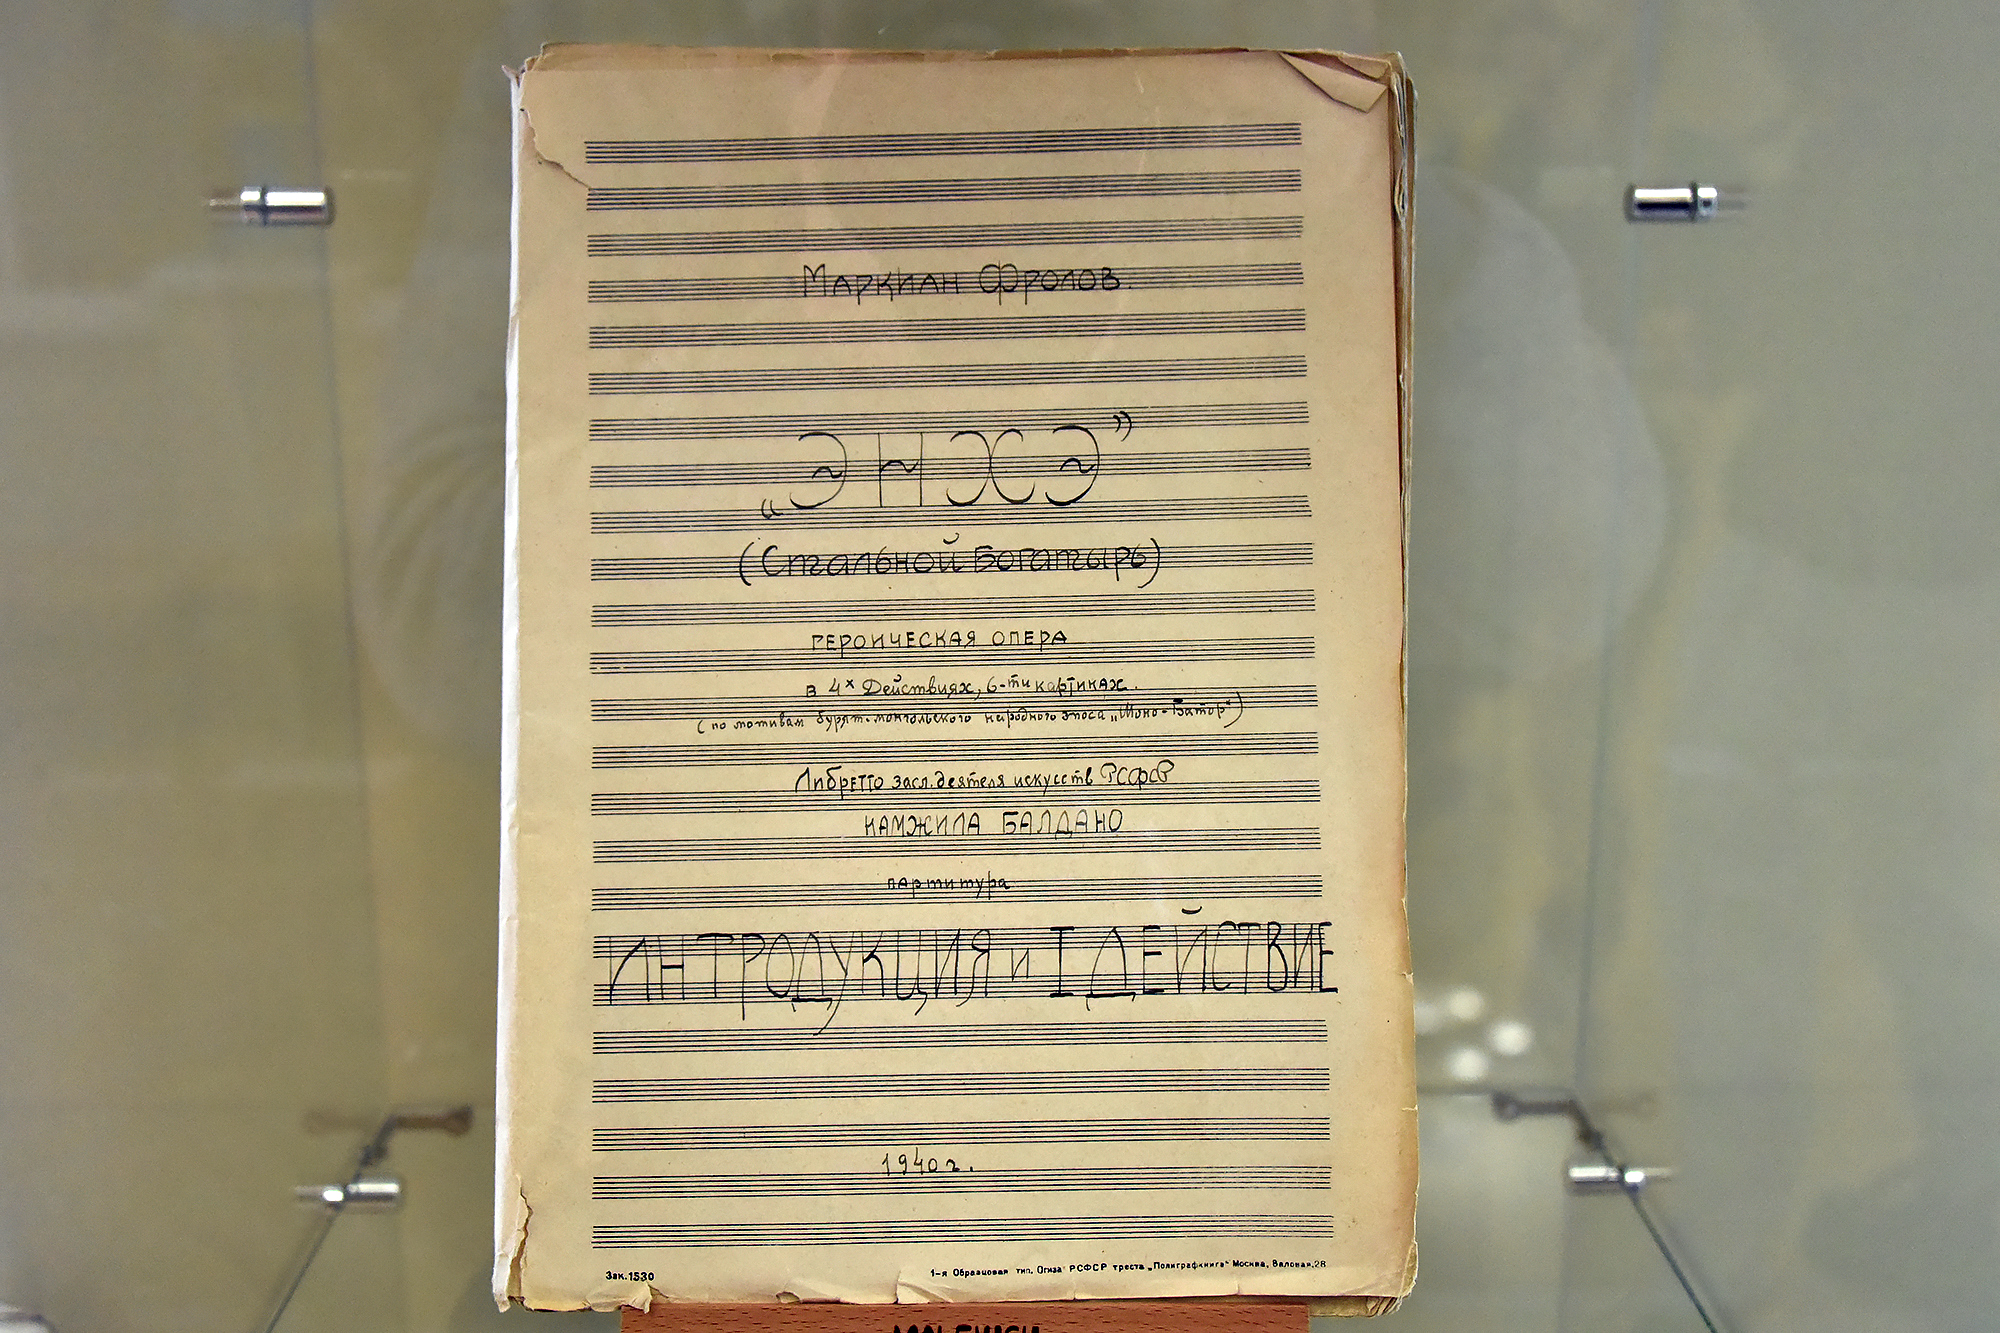 Маркиан Фролов.
„ЭНХЭ”
(Стальной Богатырь)
ГЕРОИЧЕСКАЯ ОПЕРА
в 4х Действиях, 6-ти картинах.
(по мотивам бурят-монгольского народного эпоса „Шоно-Батор”)
Либретто засл. деятеля искусств РСФСР
НАМЖИЛА БАЛДАНО
партитура
ИНТРОДУКЦИЯ и I ДЕЙСТВИЕ
1940 г.
Зак. 1530
1-я Образцовая тип. Огиза РСФСР треста „Полиграфкнига“ Москва, Валовая, 28